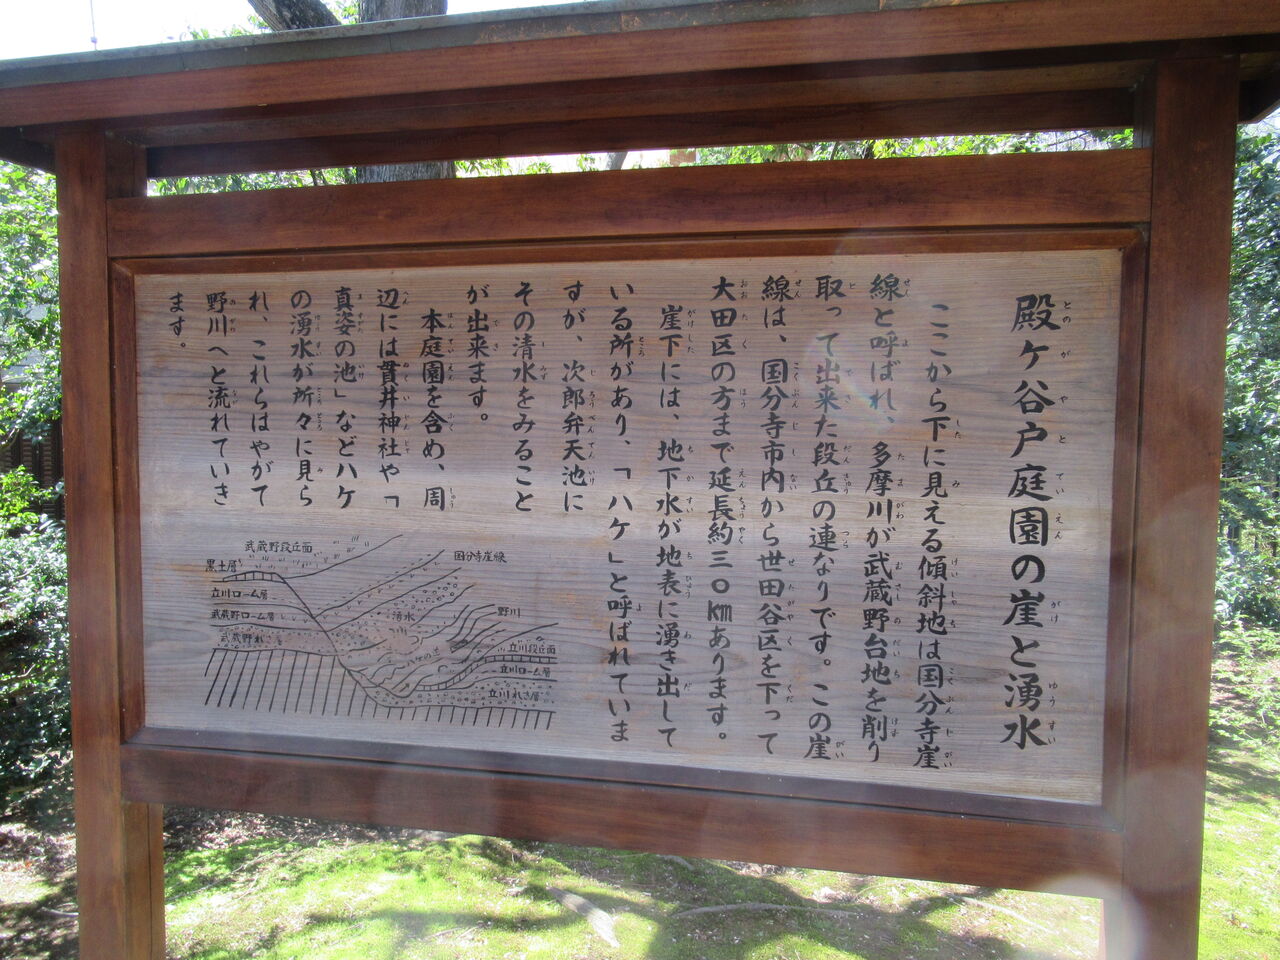 殿ヶ谷戸庭園の崖と湧水
ここから下に見える傾斜地は国分寺崖
線と呼ばれ、多摩川が武蔵野台地を削り
取って出来た段丘の連なりです。この崖
線は、国分寺市内から世田谷区を下って
大田区の方まで延長約三〇kmあります。
崖下には、地下水が地表に湧き出して
いる所があり、「ハケ」と呼ばれていま
すが、次郎弁天池に
その清水をみること
が出来ます。
本庭園を含め、周
辺には貫井神社や「
真姿の池」などハケ
の湧水が所々に見ら
れ、これらはやがて
野川へと流れていき
ます。
武蔵野段丘面
国分寺崖線
黒土層
立川ローム層
武蔵野ローム層
武蔵野れき
湧水
野川
ハケの道
立川段丘面
立川ローム層
立川れき層